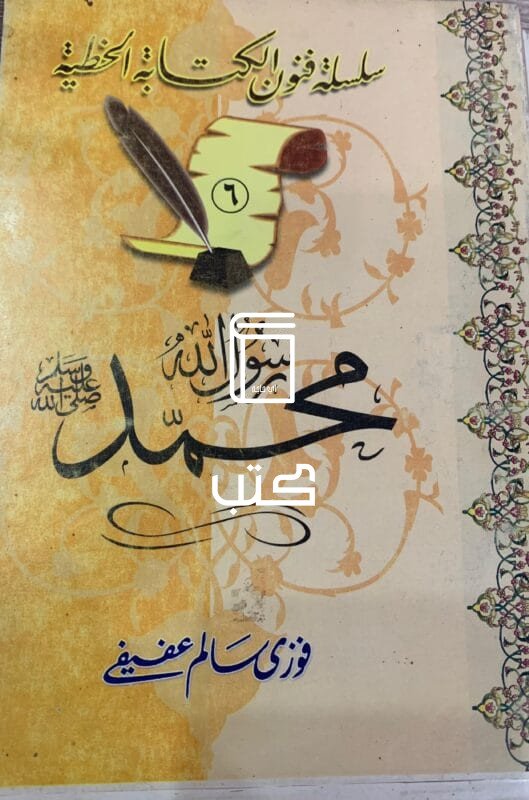 سلسلة فنون الكتابة الخطية
٦
رسول الله
محمد
صلى الله عليه وسلم
كتب
فوزي سالم عفيفي